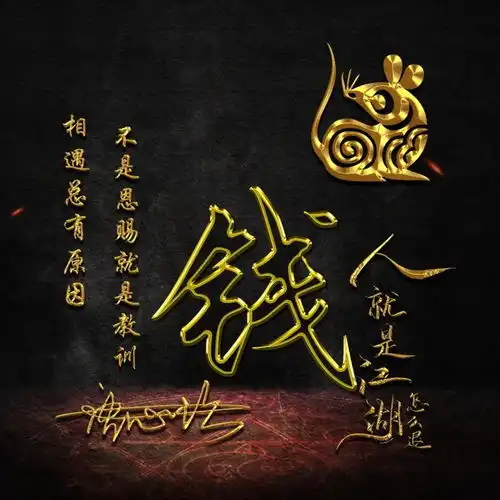 相遇总有原因
不是恩赐就是教训
钱
人就是江湖
怎么退